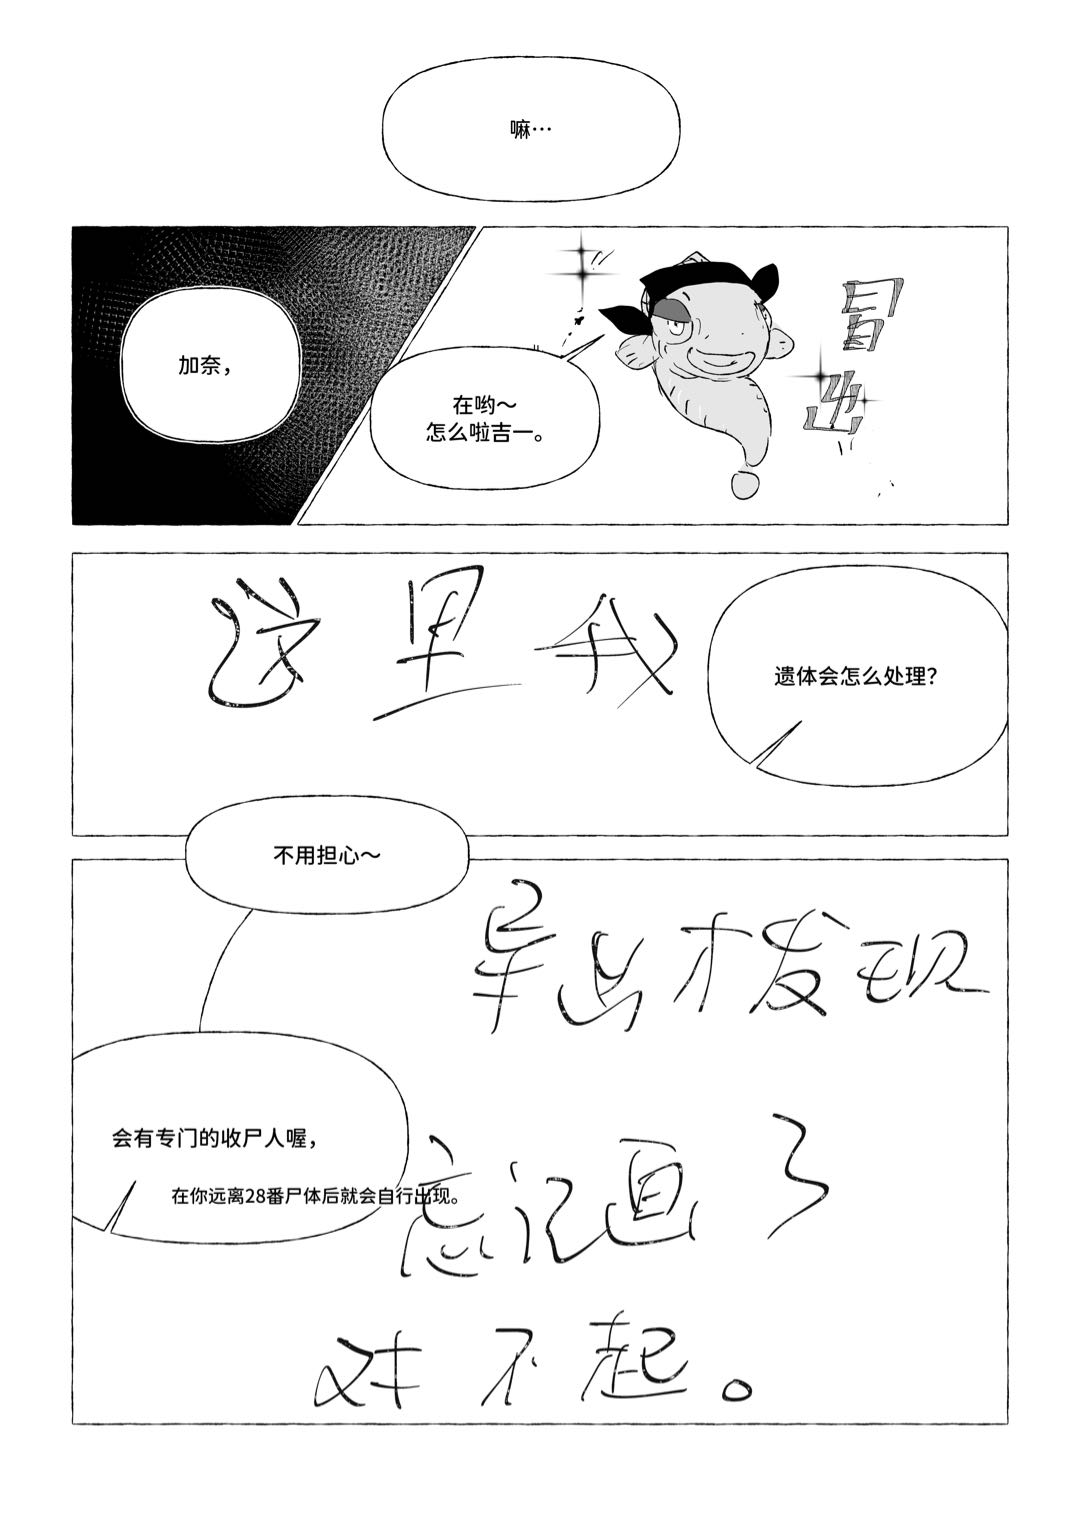 嘛…
加奈，
在哟～
怎么啦吉一。
冒出
这里我
遗体会怎么处理？
不用担心～
导出才发现
会有专门的收尸人喔，
在你远离28番尸体后就会自行出现。
忘记画了
对不起。